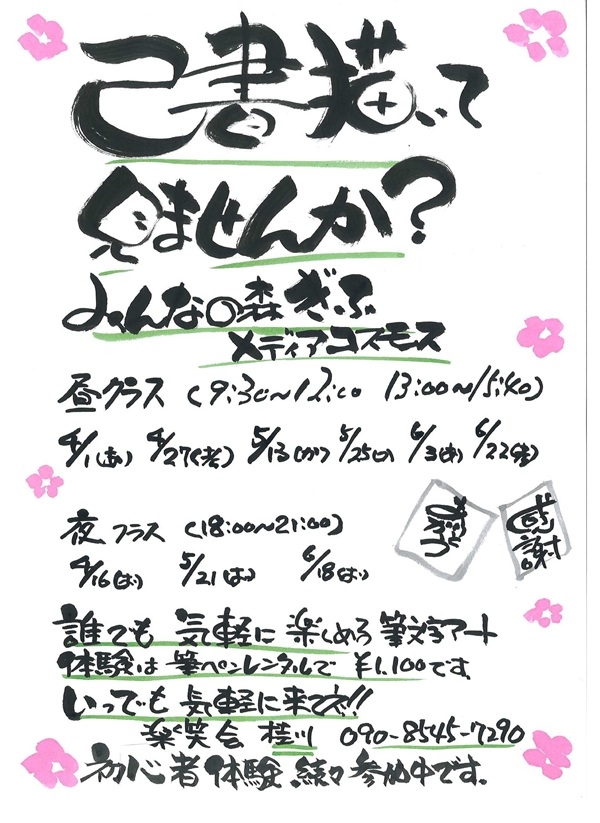 己書描いて
見ませんか?
みんなの森ぎふ
メディアコスモス
昼クラス (9:30〜12:00 13:00〜15:40)
4/1 4/27 5/13 5/25 6/3 6/22
感謝
夜クラス (18:00〜21:00)
4/16 5/21 6/18
誰でも 気軽に 楽しめる 筆文字アート
体験は 筆ペンレンタルで ¥1,100です
いつでも 気軽に来て!!
楽笑会 桂川 090-8545-7290
初心者体験、続々参加中です。